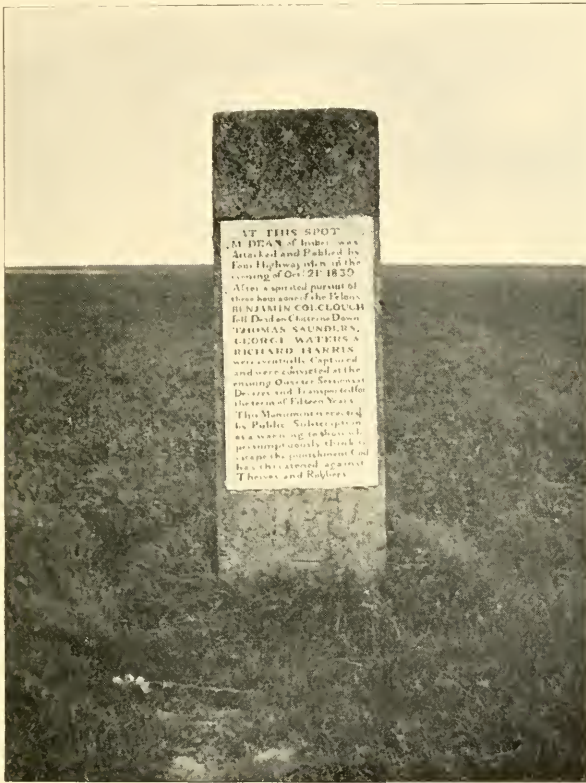 AT THIS SPOT
Mr DEAN of Imber was
Attacked and Robbed by
Four Highwaymen in the
evening of Octr 21st 1839
After a spirited pursuit of
three hours one of the Felons
BENJAMIN COLCLOUGH
fell Dead on Chitterne Down
THOMAS SAUNDERS,
GEORGE WATERS &
RICHARD HARRIS
were eventually Captured
and were convicted at the
ensuing Quarter Sessions at
Devizes and Transported for
the term of Fifteen Years
This Monument is erected
by Public Subscription
as a warning to those who
presumptuously think to
escape the punishment God
has threatened against
Thieves and Robbers